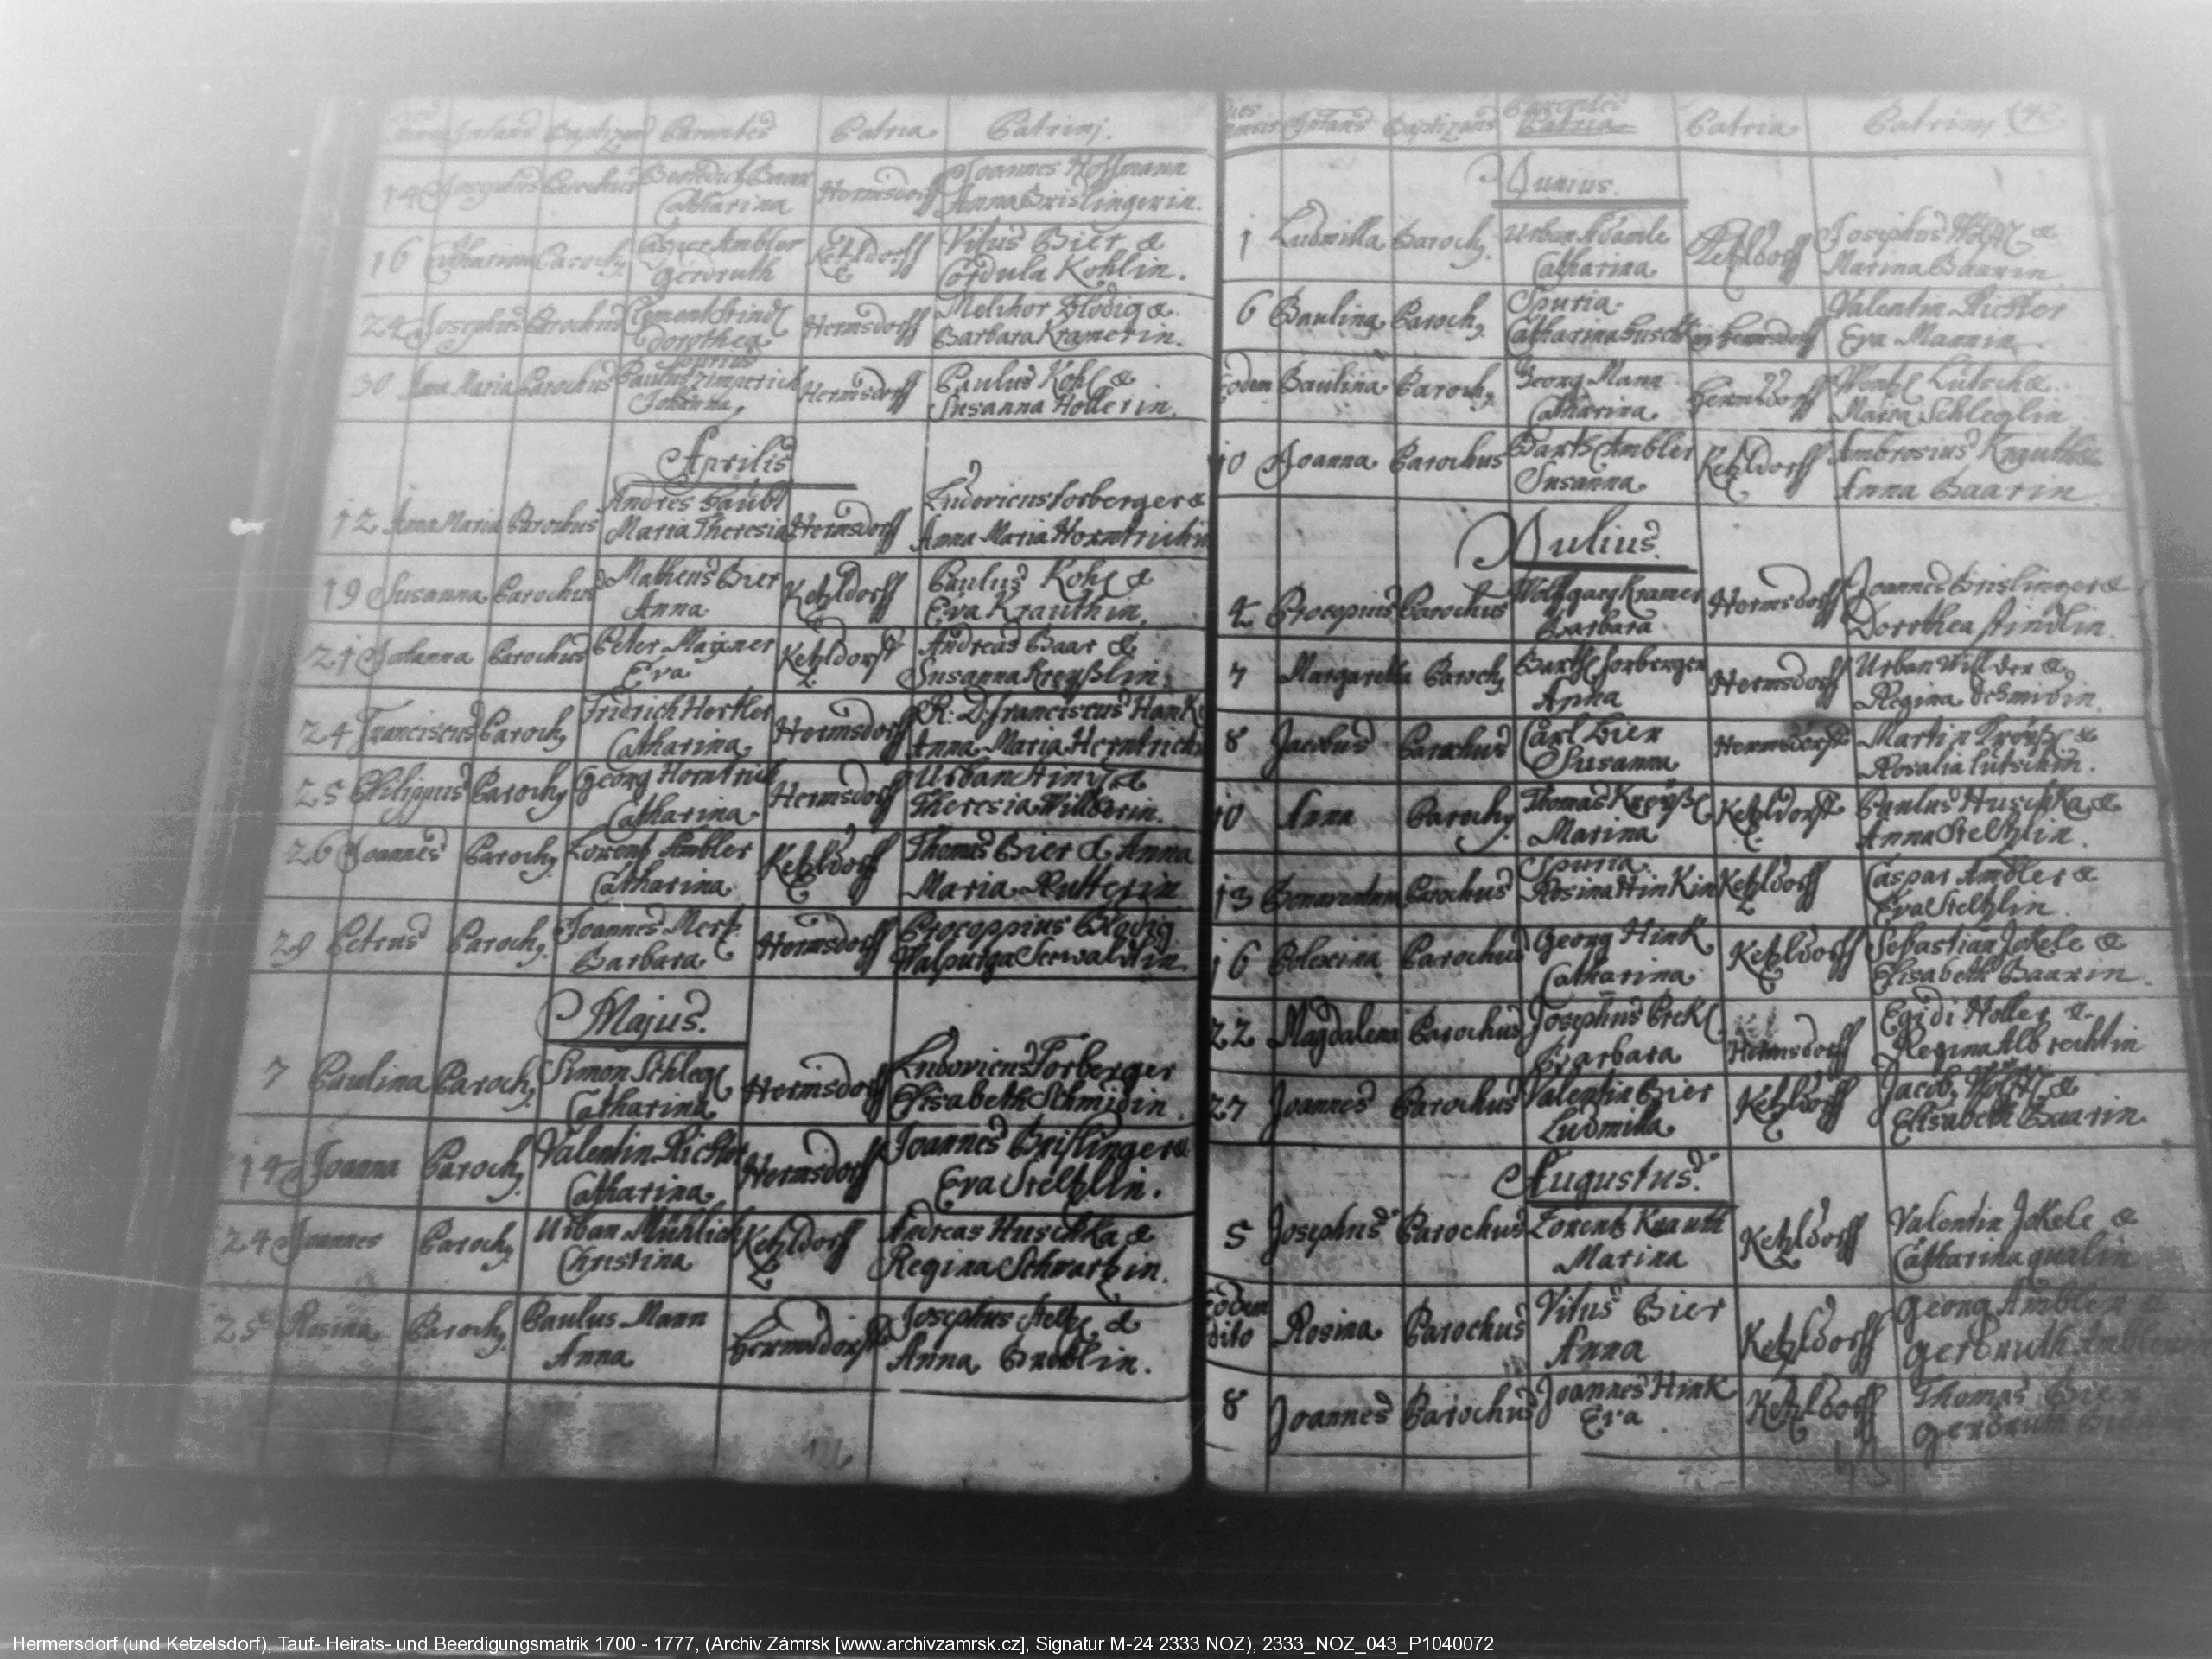 Infans Baptizans Parentes Patria Patrini.
14 Josephus Parochus Benedict Baar Hermsdorff Joannes Hoffmann
Catharina Anna Brislingerin.
16 Catharina Paroch. Ambler Ketzldorff Vitus Bier &
Gerdruth Cordula Kohlin.
24 Josephus Parochus Clement Hermsdorff Melchor Blodig &
Dorothea Barbara Kramerin.
30 Anna Maria Parochus Paulus Hermsdorff Paulus Kohl &
Johanna, Susanna Hollerin.
Aprilis
12 Anna Maria Parochus Andres Taubl Hermsdorff Ludovicus Forberger &
Maria Theresia Anna Maria
19 Susanna Parochus Matheus Bier Ketzldorff Paulus Kohl &
Anna Eva Krauthin.
21 Johanna Parochus Peter Maixner Ketzldorff Andreas Baar &
Eva Susanna Kreyßlin.
24 Franciscus Paroch, Fridrich Hertler Hermsdorff R: D: Franciscus Hanke
Catharina Anna Maria
25 Philippus Paroch, Georg Horntrich Hermsdorff Urban &
Catharina Theresia Willderin.
26 Joannes Paroch, Lorentz Ambler Ketzldorff Thomas Bier & Anna
Catharina Maria Rutterin
29 Petrus Paroch, Joannes Mertz Hermsdorff Procoppius Blodig
Barbara Walpurga
Majus.
7 Paulina Paroch, Simon Schlegl Hermsdorff Ludovicus Forberger
Catharina Elisabeth Schmidin
14 Joanna Paroch, Valentin Richter Hermsdorff Joannes Brislinger &
Catharina Eva Steltzlin.
24 Joannes Paroch, Urban Mühlich Ketzldorff Andreas Huschka &
Christina Regina Schwartzin.
25 Rosina Paroch, Paulus Mann Hermsdorff Josephus Steltzl &
Anna Anna
126
Infans Baptizans Parentes Patria Patrini 42
Junius.
1 Ludmilla Paroch, Urban Adamle Ketzldorff Josephus Wölffl &
Catharina Marina Baarin
6 Paulina Paroch, Spuria Hermsdorff Valentin Richter
Catharina Eva Mannin
eodem Paulina Paroch, Georg Mann Hermsdorff Wentzl Lutsch &
Catharina Maria Schleglin
10 Joanna Parochus Bartl Ambler Ketzldorff Ambrosius Krauth &
Susanna Anna Baarin
Julius.
4 Procopius Parochus Wolffgang Kramer Hermsdorff Joannes Brislinger &
Barbara Dorothea
7 Margaretha Paroch, Bartl Forberger Hermsdorff Urban Willder &
Anna Regina Schmidin.
8 Jacobus Parochus Carl Bier Hermsdorff Martin &
Susanna Rosalia Lutschin.
10 Anna Paroch, Thomas Kreyßl Ketzldorff Paulus Huschka &
Marina Anna Steltzlin.
13 Bonaventura Parochus Spuria Ketzldorff Caspar Ambler &
Rosina Hinkin Eva Steltzlin
16 Polexina Parochus Georg Hink Ketzldorff Sebastian Jokele &
Catharina Elisabeth Baarin.
22 Magdalena Parochus Josephus Pekl Hermsdorff Egidi Holler &
Barbara Regina Albrechtin
27 Joannes Parochus Valentin Bier Ketzldorff Jacob Wölffl &
Ludmilla Elisabeth Baarin
Augustus.
5 Josephus Parochus Lorentz Krauth Ketzldorff Valentin Jokele &
Marina Catharina
eodem
dito Rosina Parochus Vitus Bier Ketzldorff Georg Ambler &
Anna Gerdruth
8 Joannes Parochus Joannes Hink Ketzldorff Thomas Bier
Eva Gerdruth
Hermersdorf (und Ketzelsdorf), Tauf- Heirats- und Beerdigungsmatrik 1700 - 1777, (Archiv Zámrsk [www.archivzamrsk.cz], Signatur M-24 2333 NOZ), 2333_NOZ_043_P1040072